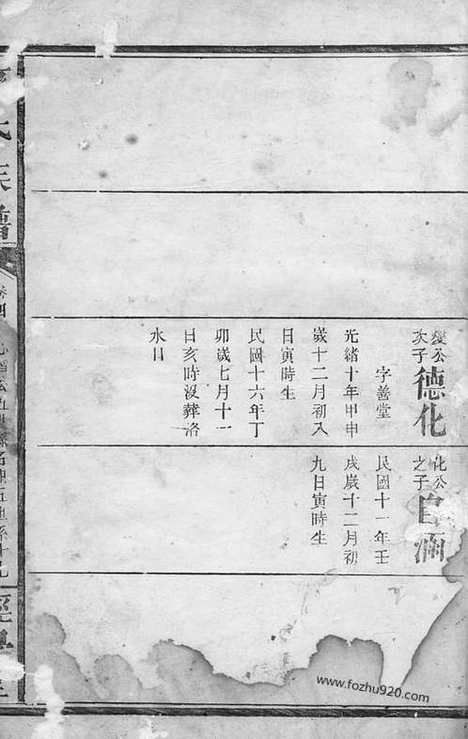 公
次子
德化
字善堂
光緒十年甲申
歲十二月初八
日寅時生
民國十六年丁
卯歲七月十一
日亥時没葬洛
水日
化公
之子
自涵
民國十一年壬
戌歲十二月初
九日寅時生
氏族譜
卷四
www.fozhu920.com